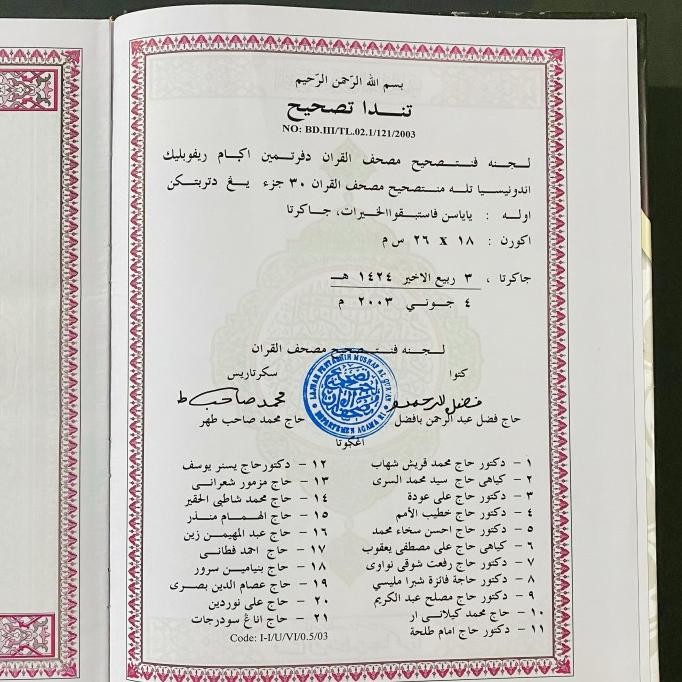 بسم الله الرّحمن الرّحيم
تندا تصحيح
NO: BD.III/TL.02.1/121/2003
لجنه فنتصحيح مصحف القران دفرتمين اكام ريفوبليك
اندونيسيا تله منتصحيح مصحف القران ٣٠ جزء يڠ دتربتكن
اوله : ياياسن فاستبقوا الخيرات، جاكرتا
اكورن : ١٨ x ٢٦ س م
جاكرتا ، ٣ ربيع الاخير ١٤٢٤ هـ
٤ جوني ٢٠٠٣ م
لجنه فنتصحيح مصحف القران
كتوا
سكرتاريس
LAJNAH PENTASHIH MUSHAF AL QUR'AN
DEPARTEMEN AGAMA RI
حاج فضل عبد الرحمن بافضل
حاج محمد صاحب طهر
اڠݢوتا
١ - دكتور حاج محمد قريش شهاب
٢ - كياهي حاج سيد محمد السرى
٣ - دكتور حاج على عودة
٤ - دكتور حاج خطيب الأمم
٥ - دكتور حاج احسن سخاء محمد
٦ - كياهي حاج على مصطفى يعقوب
٧ - دكتور حاج رفعت شوقي نواوى
٨ - دكتور حاجة فائزة شبرا مليسي
٩ - دكتور حاج مصلح عبد الكريم
١٠ - حاج محمد كيلانى ار
١١ - دكتور حاج امام طلحة
١٢ - دكتور حاج يسنر يوسف
١٣ - حاج مزمور شعرانى
١٤ - حاج محمد شاطبي الحقير
١٥ - حاج الهمام منذر
١٦ - حاج عبد المهيمن زين
١٧ - حاج احمد فطانى
١٨ - حاج بنيامين سرور
١٩ - حاج عصام الدين بصرى
٢٠ - حاج على نوردين
٢١ - حاج اناڠ سودرجات
Code: I-I/U/VI/0.5/03